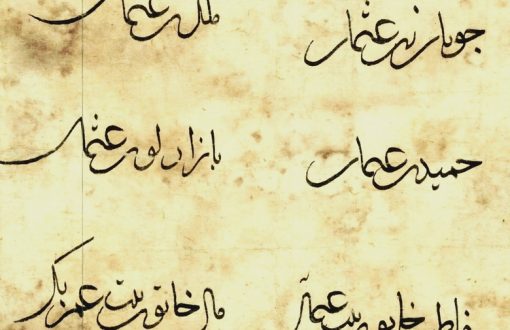 جوبان بن عثمان ملك بن عثمان
حميد بن عثمان بازارلو بن عثمان
خاتون بنت عثمان مال خاتون بنت عمر بك